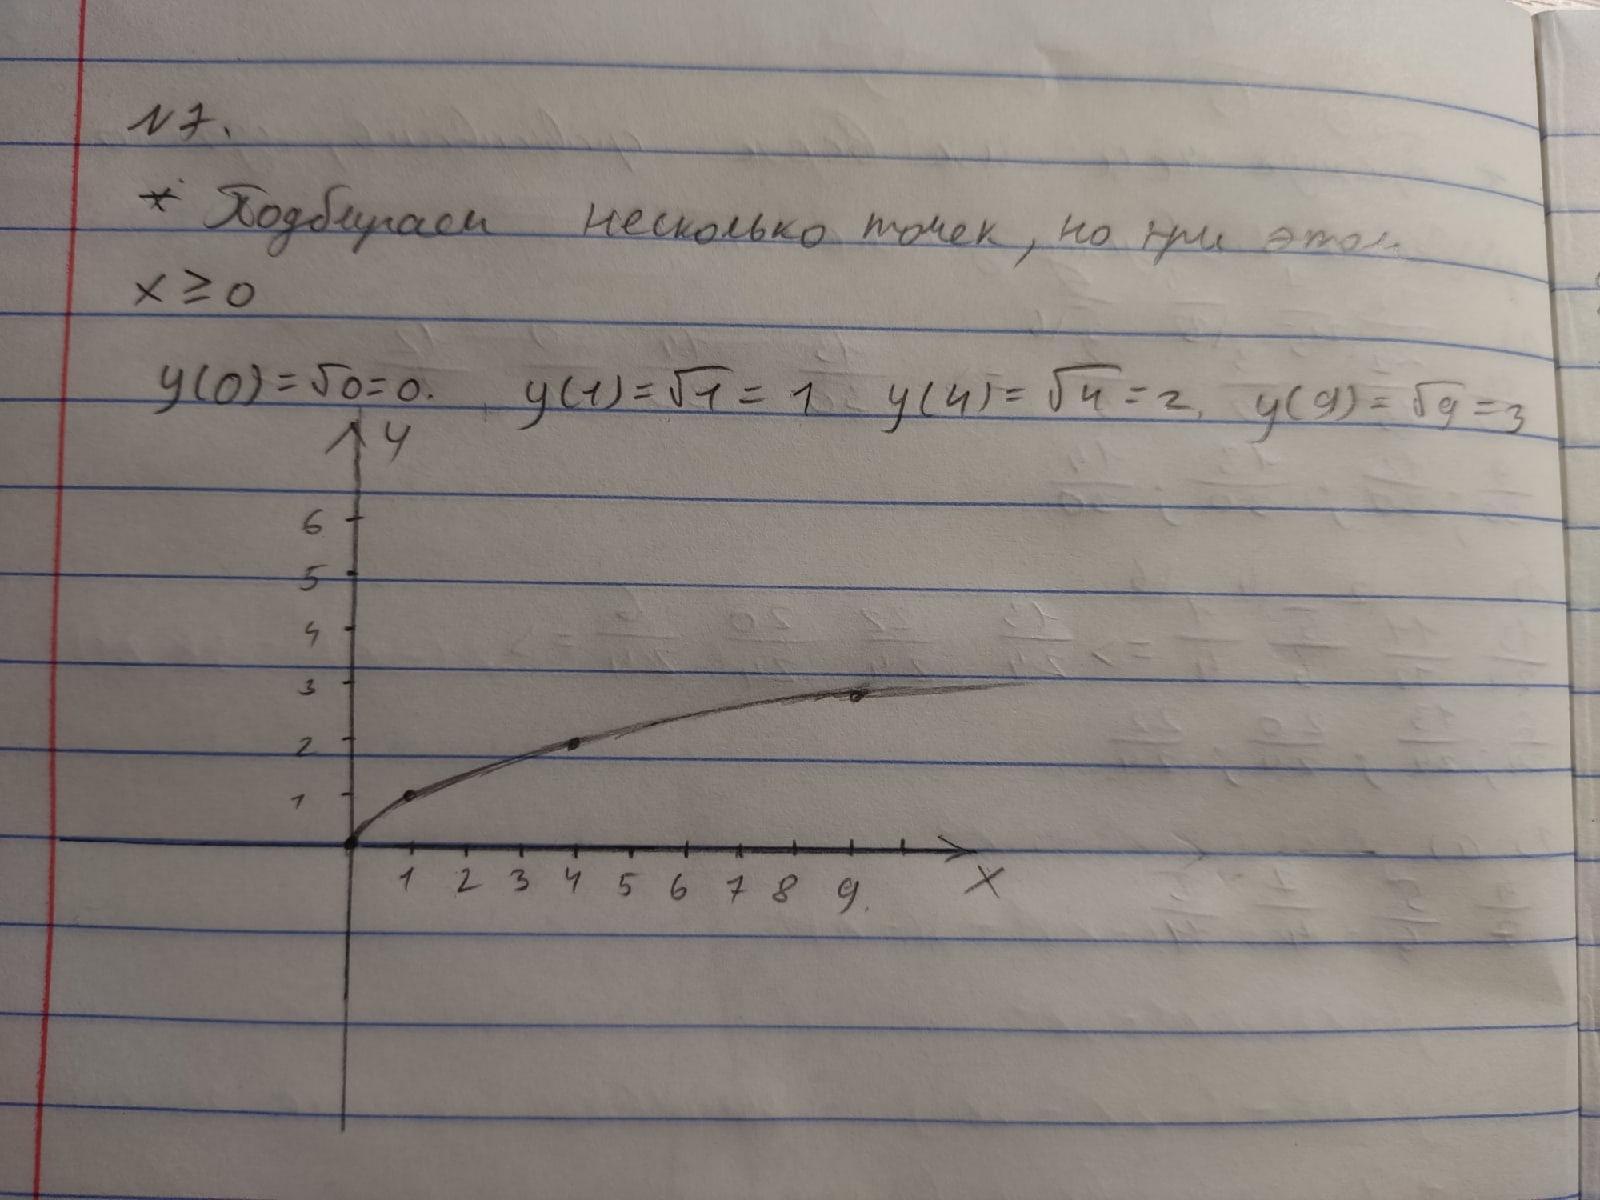 N7.
* Подбираем несколько точек, но при этом
x ≥ 0
y(0)=√0=0. y(1)=√1=1 y(4)=√4=2, y(9)=√9=3
y
6
5
4
3
2
1
1 2 3 4 5 6 7 8 9. x